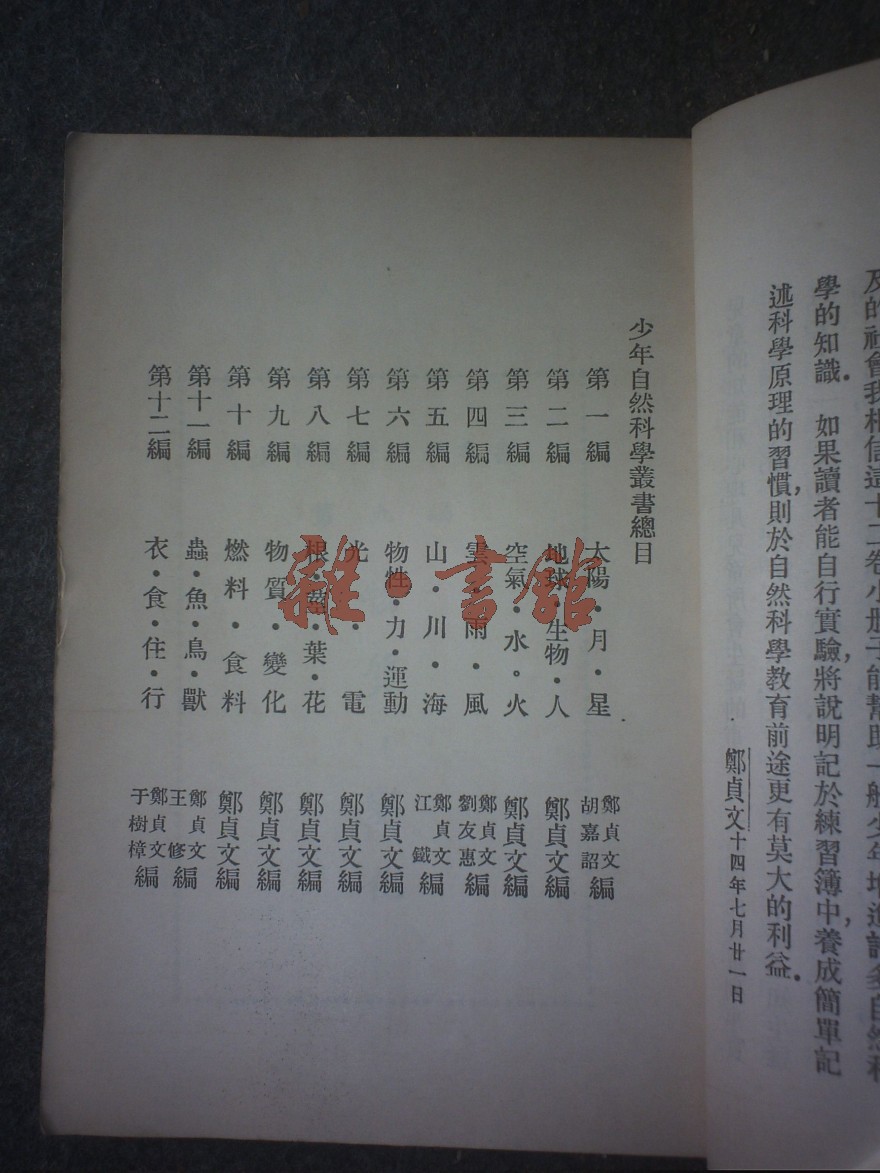 及的社會我相信這十二卷小册子能幫助一般少年增進許多自然科
學的知識．如果讀者能自行實驗，將說明記於練習簿中，養成簡單記
述科學原理的習慣，則於自然科學教育前途更有莫大的利益．
鄭貞文十四年七月廿一日
少年自然科學叢書總目
第一編 太陽・月・星 鄭貞文 胡嘉詔 編
第二編 地球・生物・人 鄭貞文編
第三編 空氣・水。火 鄭貞文編
第四編 雲・雨・風 鄭貞文 劉友惠 編
第五編 山・川・海 鄭貞文 江鐵 編
第六編 物性・力・運動 鄭貞文編
第七編 光・電 鄭貞文編
第八編 根・莖・葉・花 鄭貞文編
第九編 物質・變化 鄭貞文編
第十編 燃料・食料 鄭貞文編
第十一編 蟲・魚・鳥・獸 鄭貞文 王修 編
第十二編 衣・食・住・行 鄭貞文 于樹樟 編
雜・書館